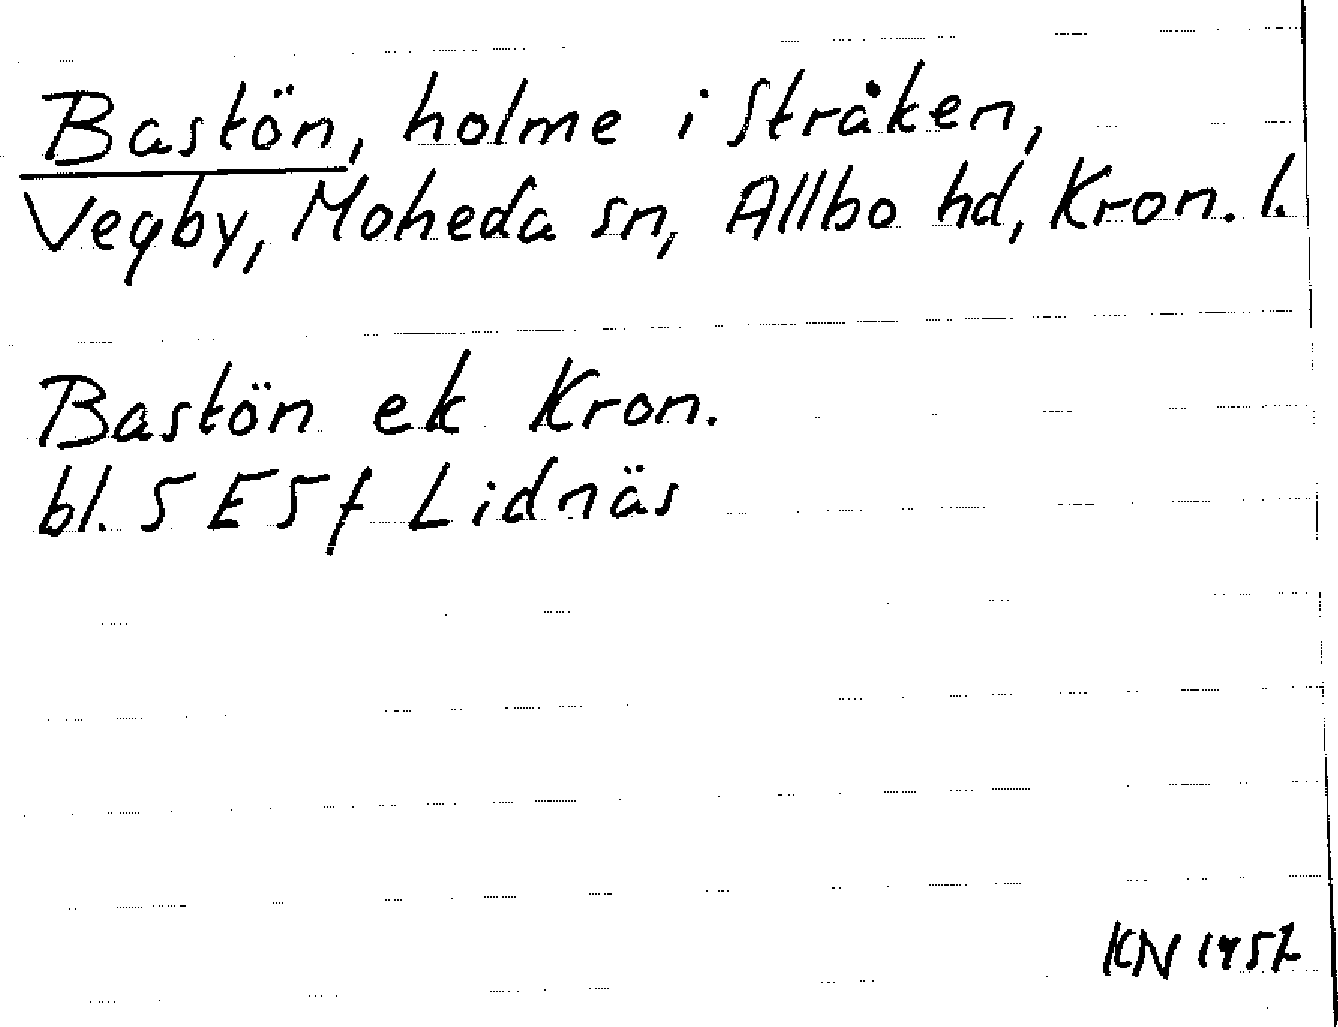 Bastön, holme i Stråken,
Vegby, Moheda sn, Allbo hd, Kron. l.
Bastön ek Kron.
bl. 5 E 5 f Lidnäs
KN 1957